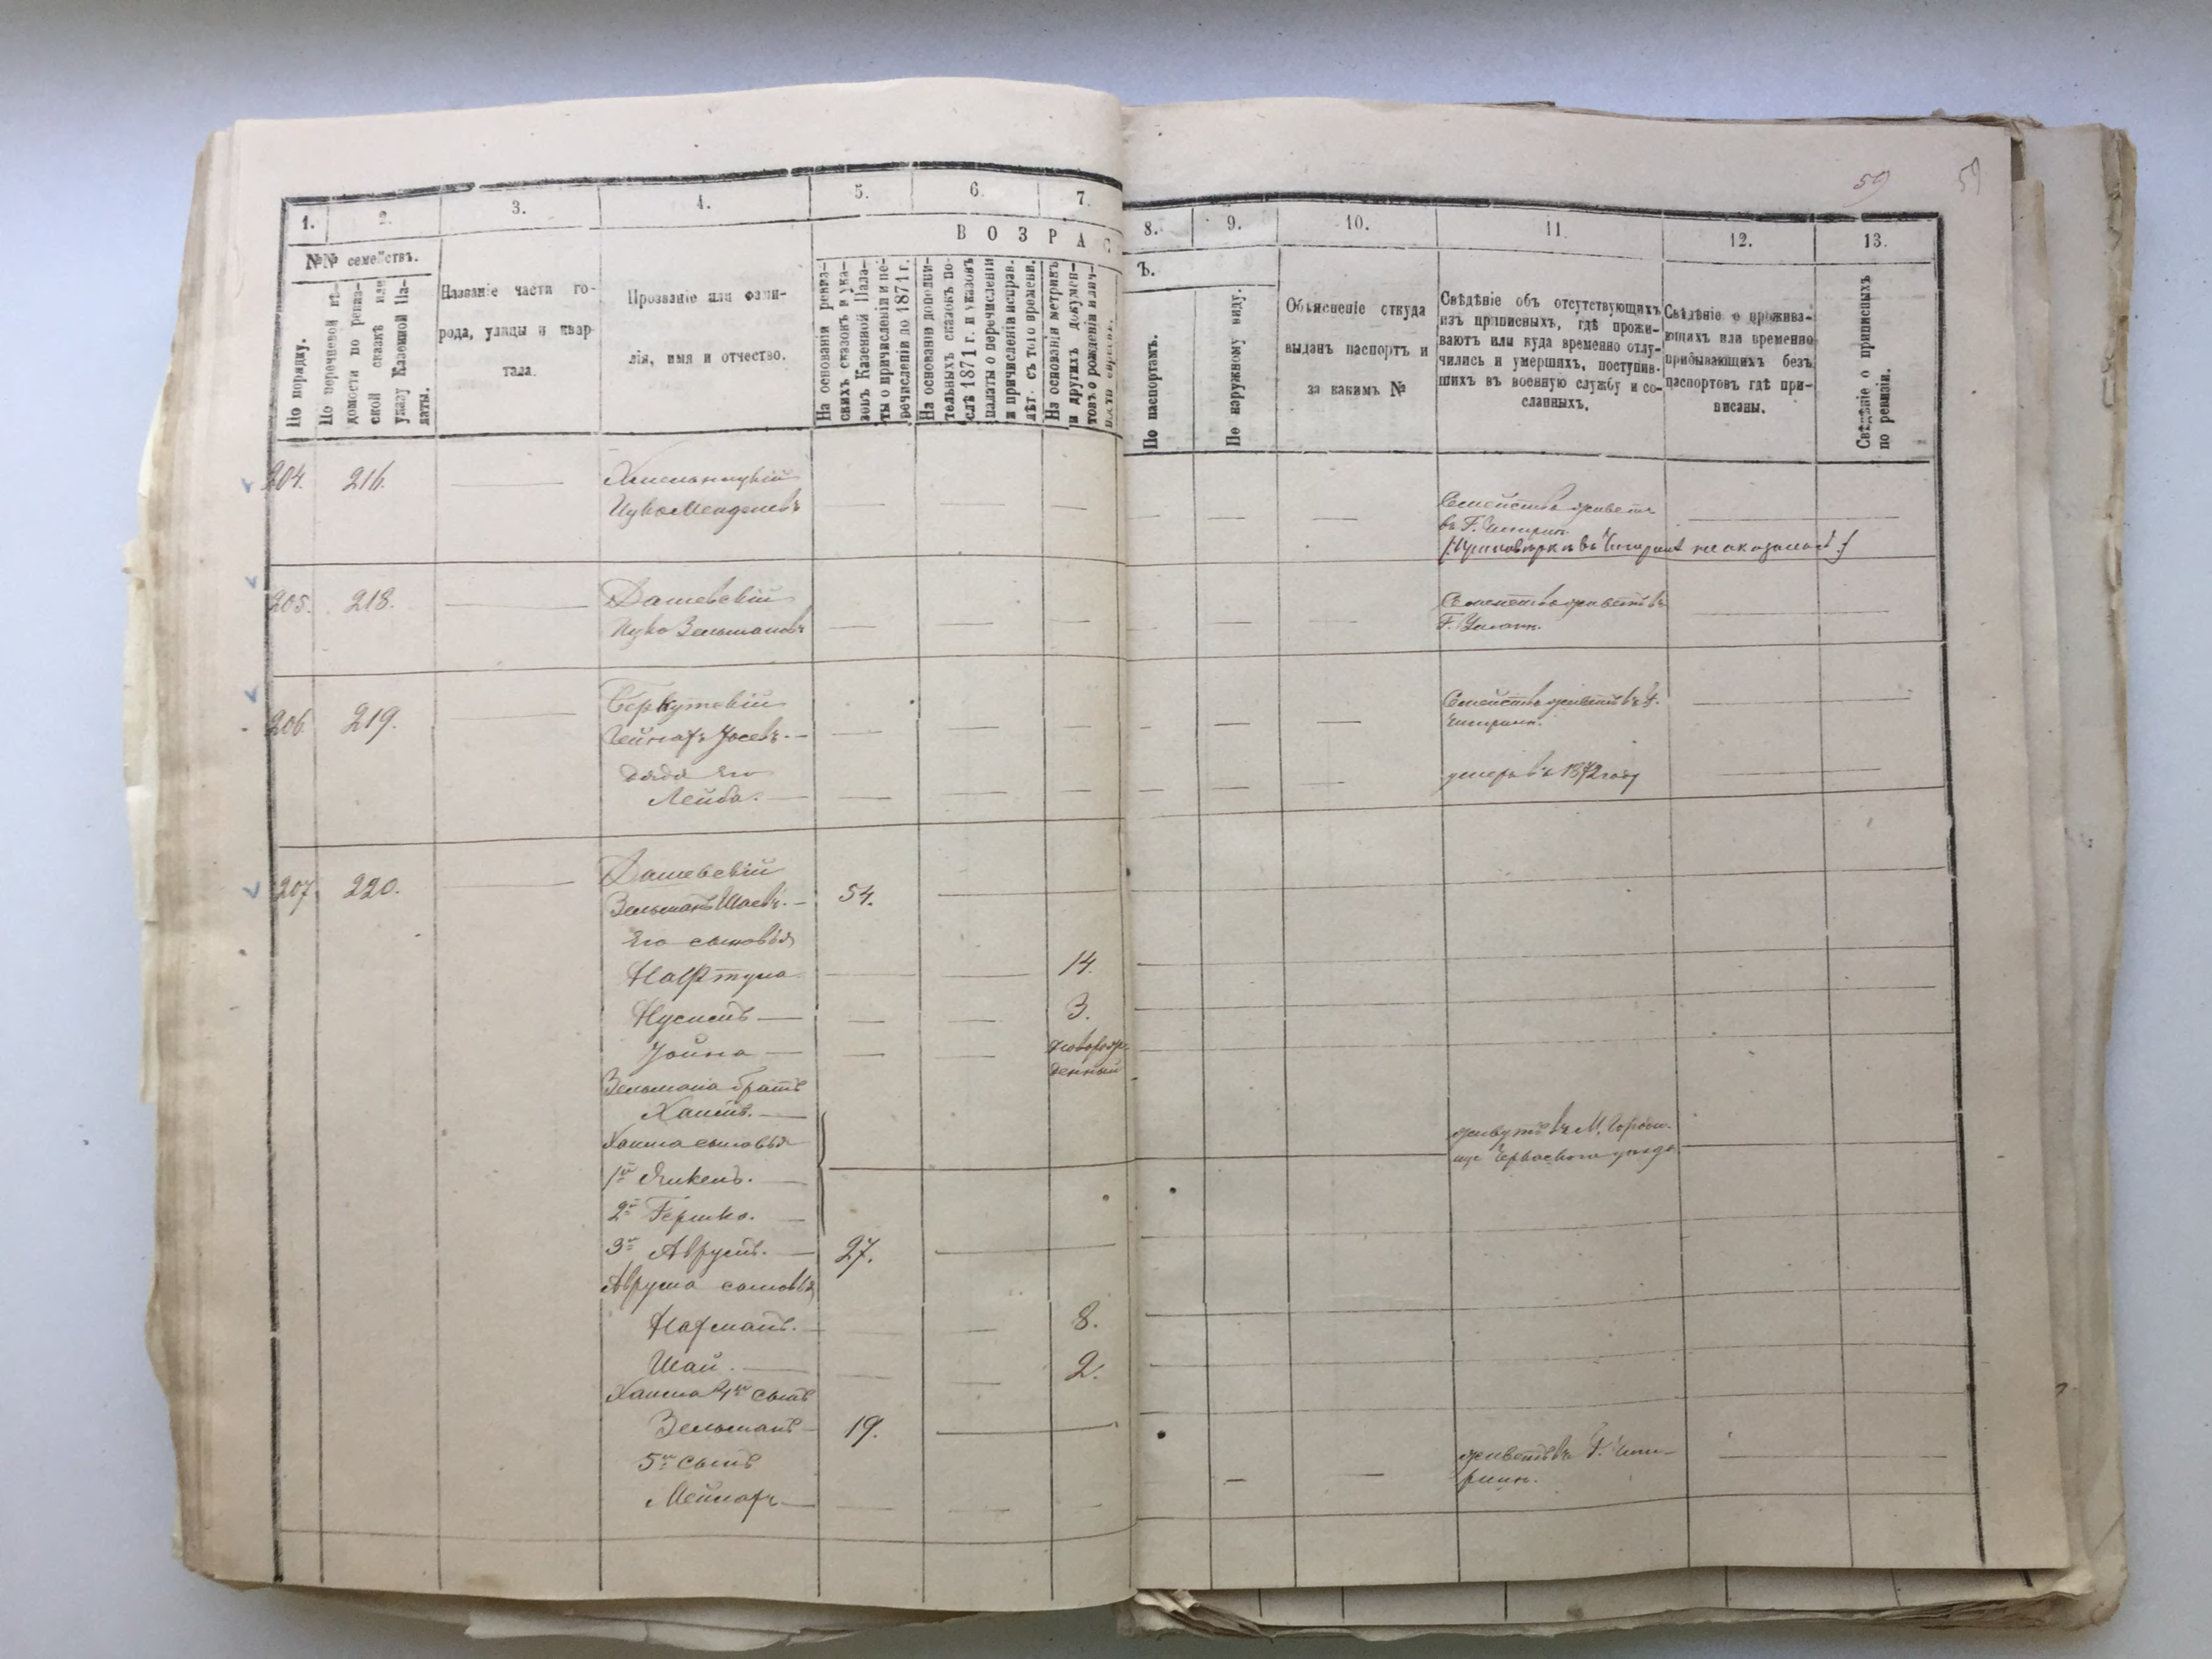 59 59
1. 2. 3. 4. 5. 6. 7. 8. 9. 10. 11. 12. 13.
№№ семействъ.
По порядку.
По перечневой вѣ-
домости по ревиз-
ской сказкѣ или
указу Казенной Па-
латы.
Названіе части го-
рода, улицы и квар-
тала.
Прозваніе или фами-
лія, имя и отчество.
ВОЗРАС
Ъ.
На основаніи ревиз-
скихъ сказокъ и ука-
зовъ Казенной Пала-
ты о причисленіи и пе-
речисленіи по 1871 г.
На основаніи дополни-
тельныхъ сказокъ по-
слѣ 1871 г. и указовъ
палаты о перечисленіи
и причисленіи исправ.
лѣт. съ того времени.
На основаніи метрикъ
и другихъ докумен-
товъ о рожденіи или
По паспортамъ.
По наружному виду.
Объясненіе откуда
выданъ паспортъ и
за какимъ №
Свѣдѣніе объ отсутствующихъ
изъ приписныхъ, гдѣ прожи-
ваютъ или куда временно отлу-
чились и умершихъ, поступив-
шихъ въ военную службу и со-
сланныхъ.
Свѣдѣніе о прожива-
ющихъ или временно
прибывающихъ безъ
паспортовъ гдѣ при-
писаны.
Свѣдѣніе о приписныхъ
по ревизіи.
204. 216. Хмельницкій
Ицко Менделевъ
Семейство живетъ
въ Г. Чигирин.
205. 218. Дашевскій
Ицко Зельмановъ
Семейство живетъ въ
Г.
206. 219. Беркутскій
Мейлахъ Іосевъ.
Семейство живетъ въ Г.
Чигирин.
дядя его
Лейба.
умеръ въ 1872 году
207. 220. Дашевскій
Зельманъ Шаевъ. 54.
Его сыновья
Нафтула 14.
Нусимъ 3.
Іойна новорож-
денный
Зельмана братъ
Хаимъ.
Хаима сыновья
живутъ въ М. Городи-
ще Черкаскаго уѣзда
1й Янкель.
2й Гершко.
3й Аврумъ. 27.
Аврума сыновья
Нахманъ. 8.
Шай. 2.
Хаима 4й сынъ
Зельманъ 19.
5й сынъ
Мейлахъ
живетъ въ Г. Чиги-
ринѣ.